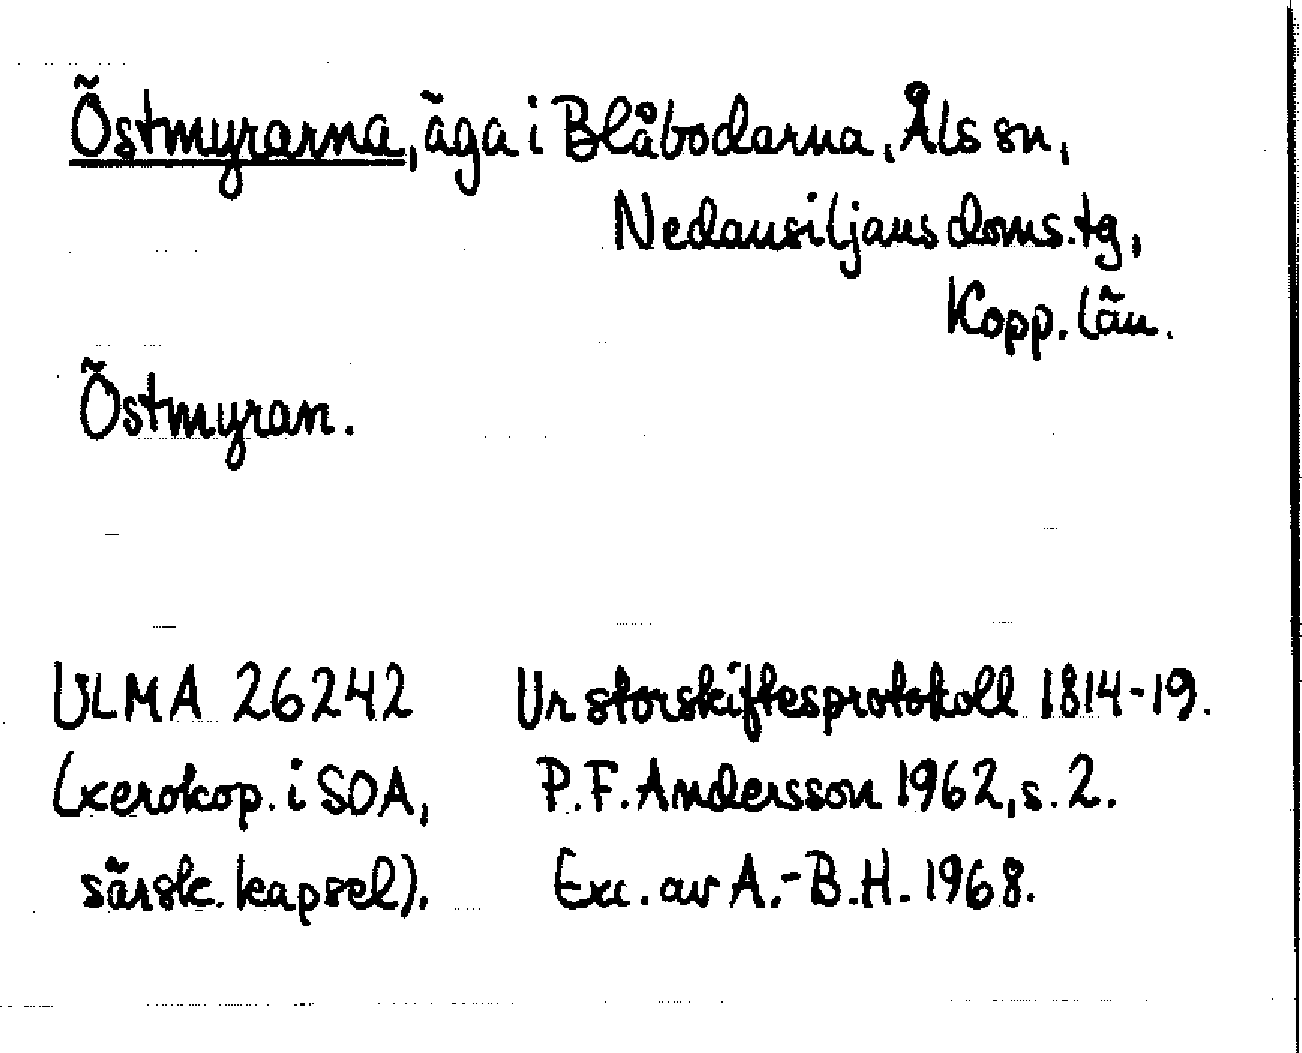 Östmyrarna, äga i Blåbodarna, Åls sn,
Nedansiljans doms.tg,
Kopp. län.
Östmyran.
ULMA 26242 Ur storskiftesprotokoll 1814-19.
(xerokop. i SOA, P.F. Andersson 1962, s. 2.
särsk. kapsel). Exc. av A.-B.H. 1968.